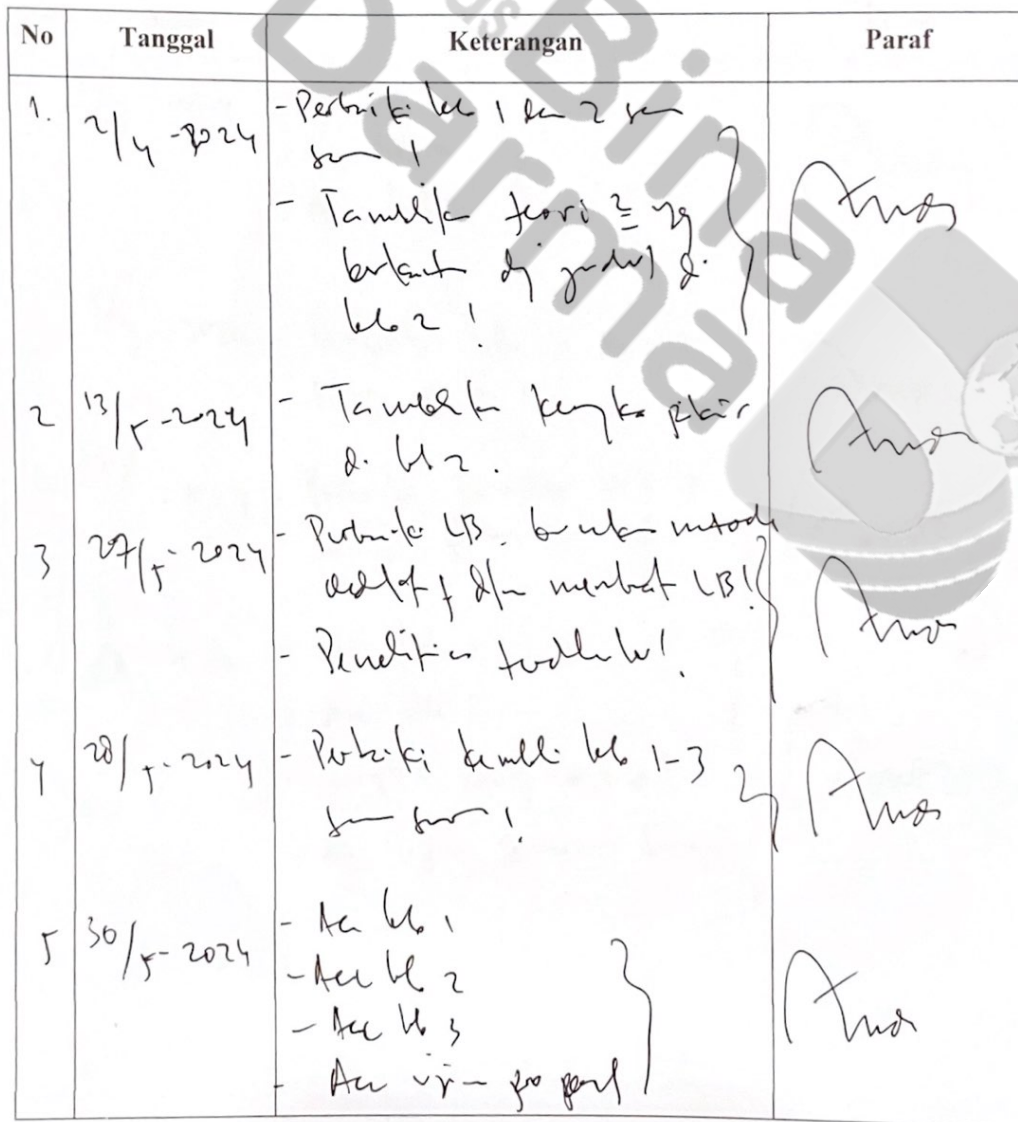 No Tanggal Keterangan Paraf
1. 2/4-2024 - Perbaiki bab 1 dan 2 sesuai
saran!
- Tambahkan teori2 yg
berkaitan dg judul di
bab 2!
2 13/5-2024 - Tambahkan kerangka pikir
di bab 2.
3 27/5-2024 - Perbaiki LB, gunakan metode
deduktif dlm membuat LB!
- Penelitian terdahulu!
4 28/5-2024 - Perbaiki kembali bab 1-3
sesuai saran!
5 30/5-2024 - Acc bab 1
- Acc bab 2
- Acc bab 3
- Acc ujian proposal
Bina
Darma